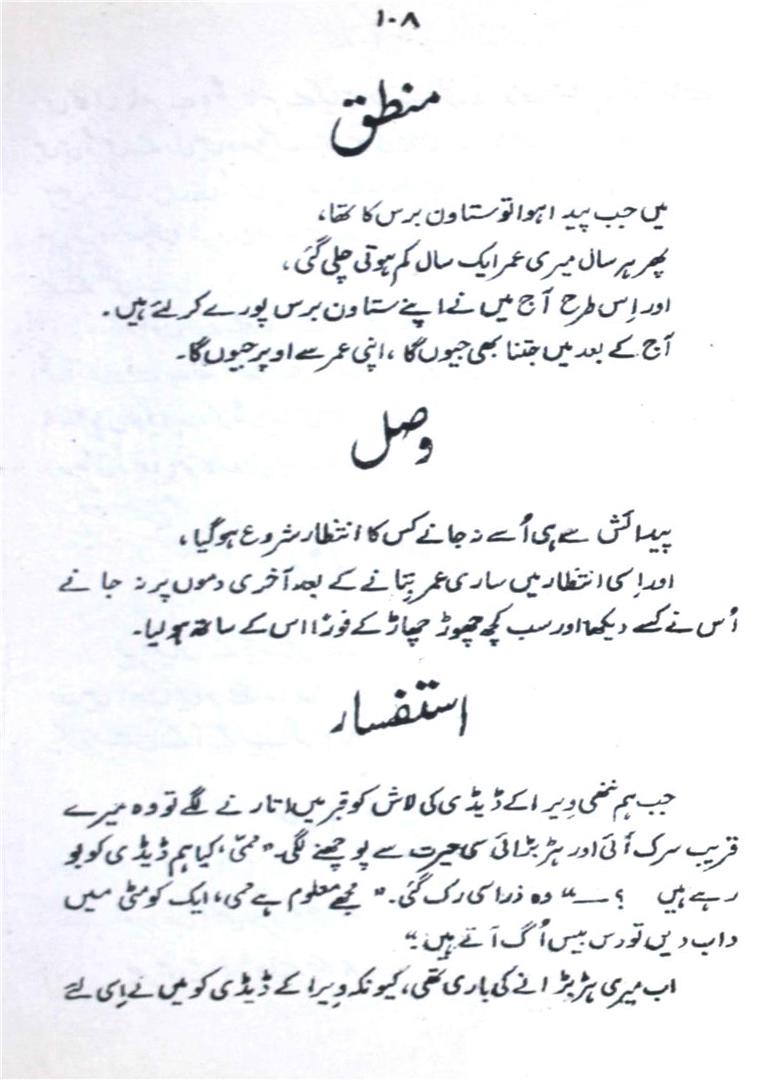 ۱۰۸
منطق
میں جب پیدا ہوا تو ستاون برس کا تھا،
پھر ہر سال میری عمر ایک سال کم ہوتی چلی گئی،
اور اِس طرح آج میں نے اپنے ستاون برس پورے کر لئے ہیں۔
آج کے بعد میں جتنا بھی جیوں گا، اپنی عمر سے اوپر جیوں گا۔
وصل
پیدائش سے ہی اُسے نہ جانے کس کا انتظار شروع ہوگیا،
اور اِسی انتظار میں ساری عمر بِتانے کے بعد آخری دموں پر نہ جانے
اُس نے کسے دیکھا اور سب کچھ چھوڑ چھاڑ کے فوراً اس کے ساتھ ہو لیا۔
استفسار
جب ہم ننھی ویرا کے ڈیڈی کی لاش کو قبر میں اتارنے لگے تو وہ میرے
قریب سرک آئی اور ہڑبڑائی سی حیرت سے پوچھنے لگی۔ "ممّی، کیا ہم ڈیڈی کو بو
رہے ہیں ؟ —" وہ ذرا سی رک گئی۔ "مجھے معلوم ہے ممی، ایک کو مٹی میں
داب دیں تو دس بیس اُگ آتے ہیں۔"
اب میری ہڑبڑانے کی باری تھی، کیونکہ ویرا کے ڈیڈی کو میں نے اِسی لئے